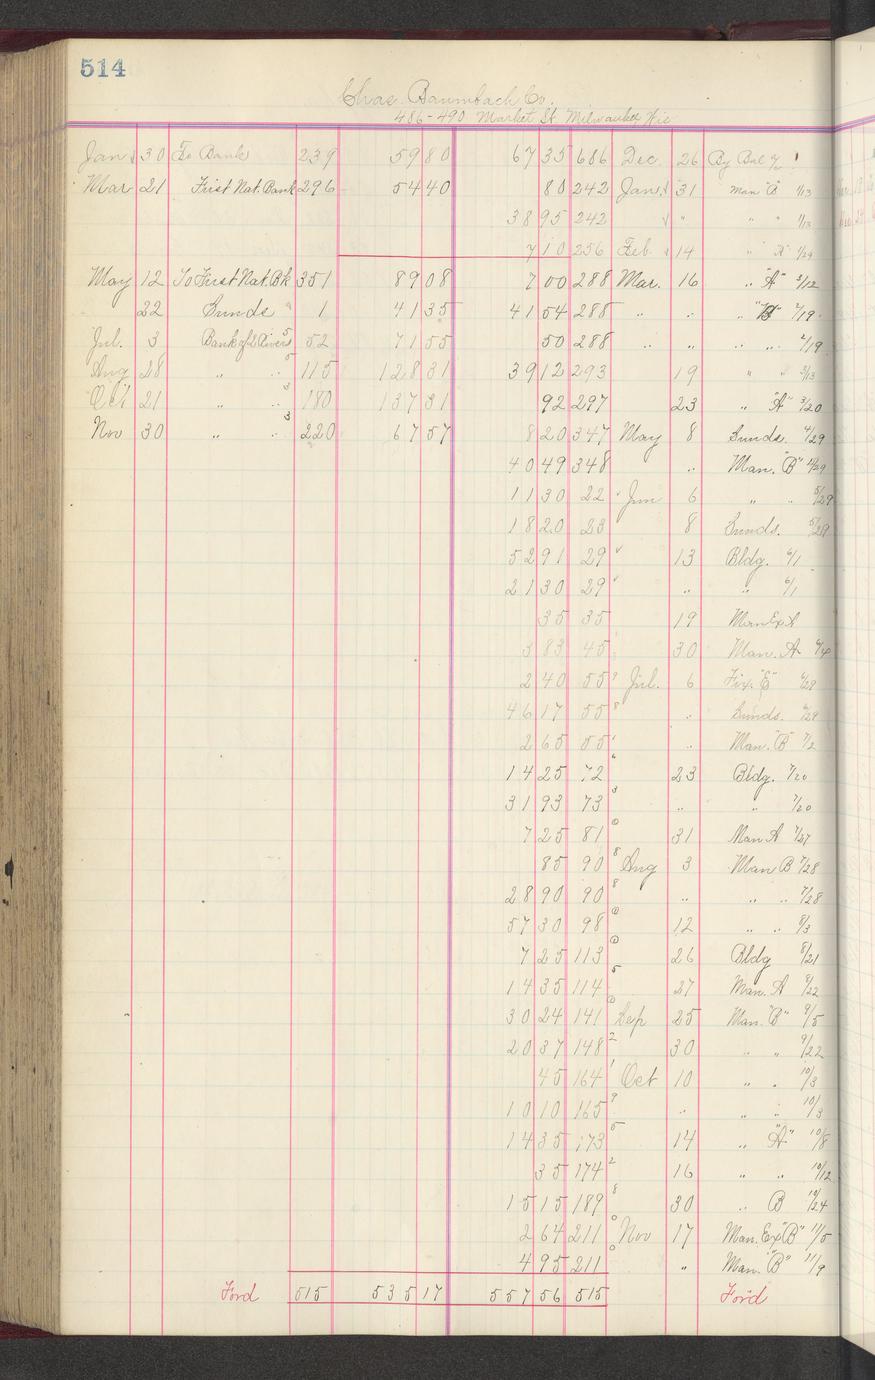 514
Chas. Baumbach Co.
486-490 Market St. Milwaukee Wis
Jan 30 To Bank 239 59 80 67 35 686 Dec. 26 By Bal
Mar 21 First Nat. Bank 296 54 40 80 242 Jan. 31 Man "B" 1/13
38 95 242 " " " 1/13
7 10 256 Feb. 14 " "A" 1/29
May 12 To First Nat. Bk 351 89 08 7 00 288 Mar. 16 " "A" 3/12
22 Sunds 1 41 35 41 54 288 " " " "B" 2/19
Jul. 3 Bank of 2 Rivers 52 71 55 50 288 " " " " 2/19
Aug 28 " " 115 128 31 39 12 293 19 " " 3/13
Oct 21 " " 180 137 31 92 297 23 " "A" 3/20
Nov 30 " " 220 67 57 8 20 347 May 8 Sunds. 4/29
40 49 348 " Man. "B" 4/29
11 30 22 Jun 6 " " 5/29
18 20 23 8 Sunds. 5/29
52 91 29 13 Bldg. 6/1
21 30 29 " " 6/1
35 35 19 Man Ex A
3 83 45 30 Man. A
2 40 55 Jul. 6 Fix. "E" 6/29
46 17 55 " Sunds. 6/29
2 65 55 " Man. "B" 7/2
14 25 72 23 Bldg. 7/20
31 93 73 " " 7/20
7 25 81 31 Man A 7/27
85 90 Aug 3 Man B 7/28
28 90 90 " " 7/28
57 30 98 12 " " 8/3
7 25 113 26 Bldg 8/21
14 35 114 27 Man. A 8/22
30 24 141 Sep 25 Man. "B" 9/5
20 37 148 30 " " 9/22
45 164 Oct 10 " " 10/3
10 10 165 " " " 10/3
14 35 173 14 " "A" 10/8
35 174 16 " " 10/12
15 15 189 30 " B 10/24
2 64 211 Nov 17 Man. Ex "B" 11/5
4 95 211 " Man. "B" 11/9
Ford 515 535 17 557 56 515 Ford